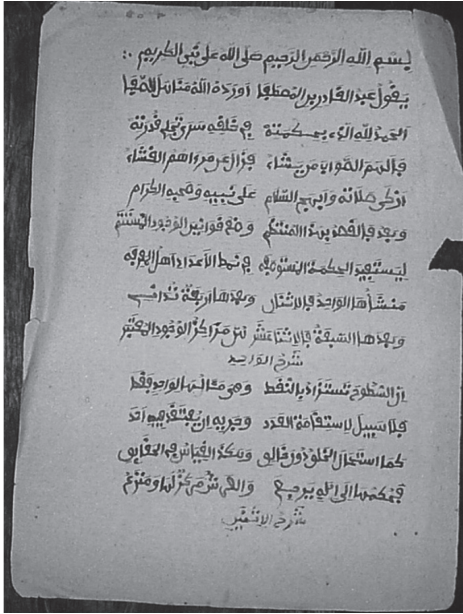 بِسْمِ اللهِ الرَّحْمٰنِ الرَّحِيمِ صَلَّى اللهُ عَلَى نَبِيِّ الكَرِيمِ
يَقُولُ عَبْدُ القَادِرِ بْنُ المُصْطَفَى أَوْرَدَهُ اللهُ مَنَاهِلَ الصَّفَا
الحَمْدُ لِلّٰهِ الَّذِي بِحِكْمَتِهْ فِي خَلْقِهِ سَرَى تَجَلِّي قُدْرَتِهْ
فَأَلْهَمَ الصَّوَابَ مَن يَشَاءُ فَزَالَ عَن مِرْآهُمُ الغِشَاءُ
أَزْكَى صَلَاتِهِ وَأَبْهَجُ السَّلَامِ عَلَى نَبِيِّهِ وَصَحْبِهِ الكِرَامِ
وَبَعْدُ فَالقَصْدُ بِهٰذَا المُنتَظِمْ وَضْعُ قَوَانِينِ الوُجُودِ
لِيَسْتَفِيدَ الحِكْمَةَ المُسْتَوْفِيَهْ فِي نَمَطِ الأَعْدَادِ أَهْلُ
مَنشَأُهَا الوَاحِدُ فَالاثْنَانِ وَبَعْدَهَا أَرْبَعَةٌ
وَبَعْدَهَا السَّبْعَةُ فَالاثْنَا عَشَرْ مَرَاكِزُ الوُجُودِ المُعْتَبَرْ
شَرْحُ الوَاحِدِ
إِنَّ السُّطُوحَ تَسْتَزَادُ بِالنُّقَطْ وَهِيَ مِثَالُهَا الوَاحِدُ فَقَطْ
فَلَا سَبِيلَ لِاسْتِقَامَةِ العَدَدْ أَحَدْ
كَمَا اسْتَحَالَ الخَلْقُ دُونَ خَالِقِ وَهٰكَذَا القِيَاسُ فِي الحَقَائِقِ
يَرْجِعُ
شَرْحُ الاثْنَيْنِ